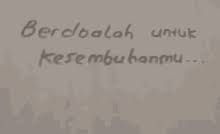 Berdoalah untuk
kesembuhanmu...